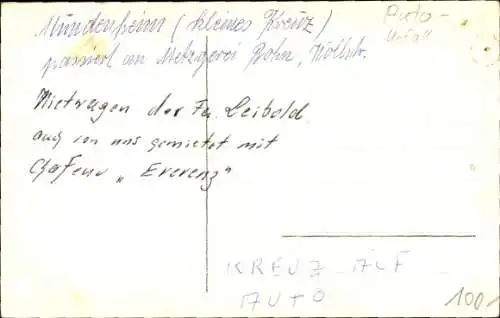 Mundenheim (kleines Kreuz)
passiert an Metzgerei Bohn,
Auto-
Unfall
Mietwagen der Fa. Leibold
auch von uns gemietet mit
"Ererenz"
KREUZ AUF
AUTO
100